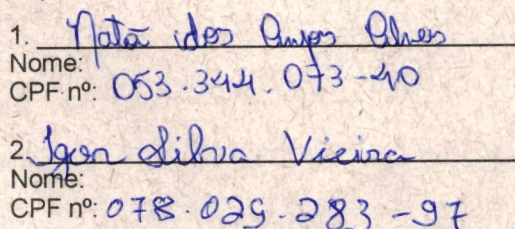 1. Natã dos Anjos Alves
Nome:
CPF nº: 053.344.073-40
2. Igor Silva Vieira
Nome:
CPF nº: 078.029.283-97